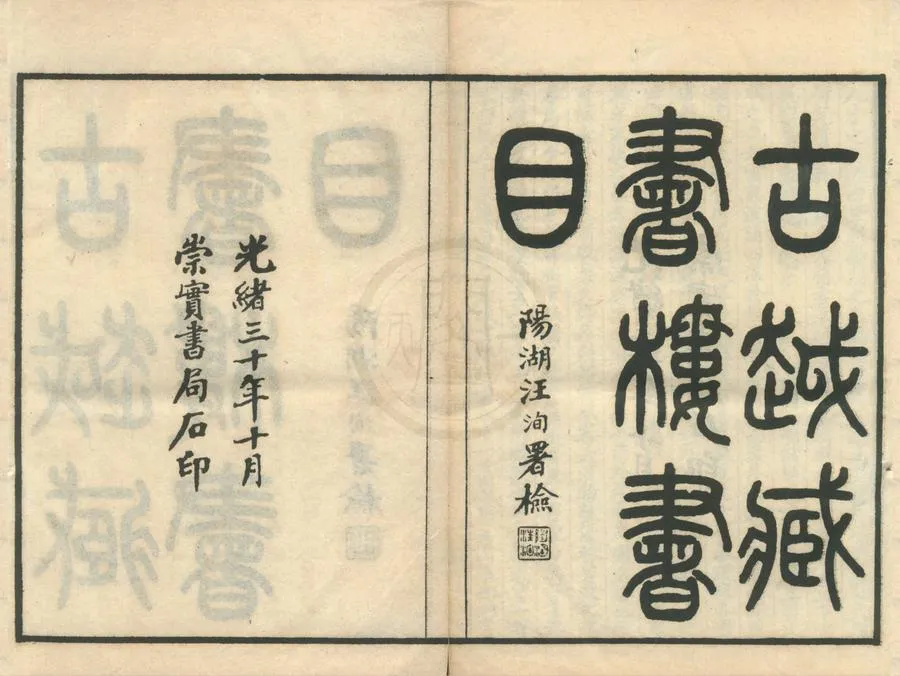 古越藏
書樓書
目
陽湖汪洵署檢
光緒三十年十月
崇實書局石印